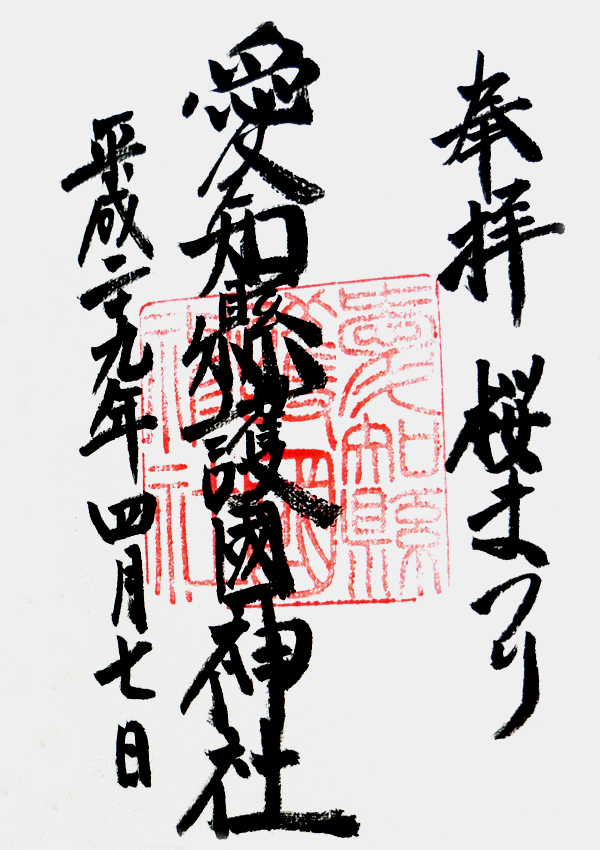 奉拝 桜まつり
愛知縣護國神社
平成二十九年四月七日
愛知縣
護國
神社